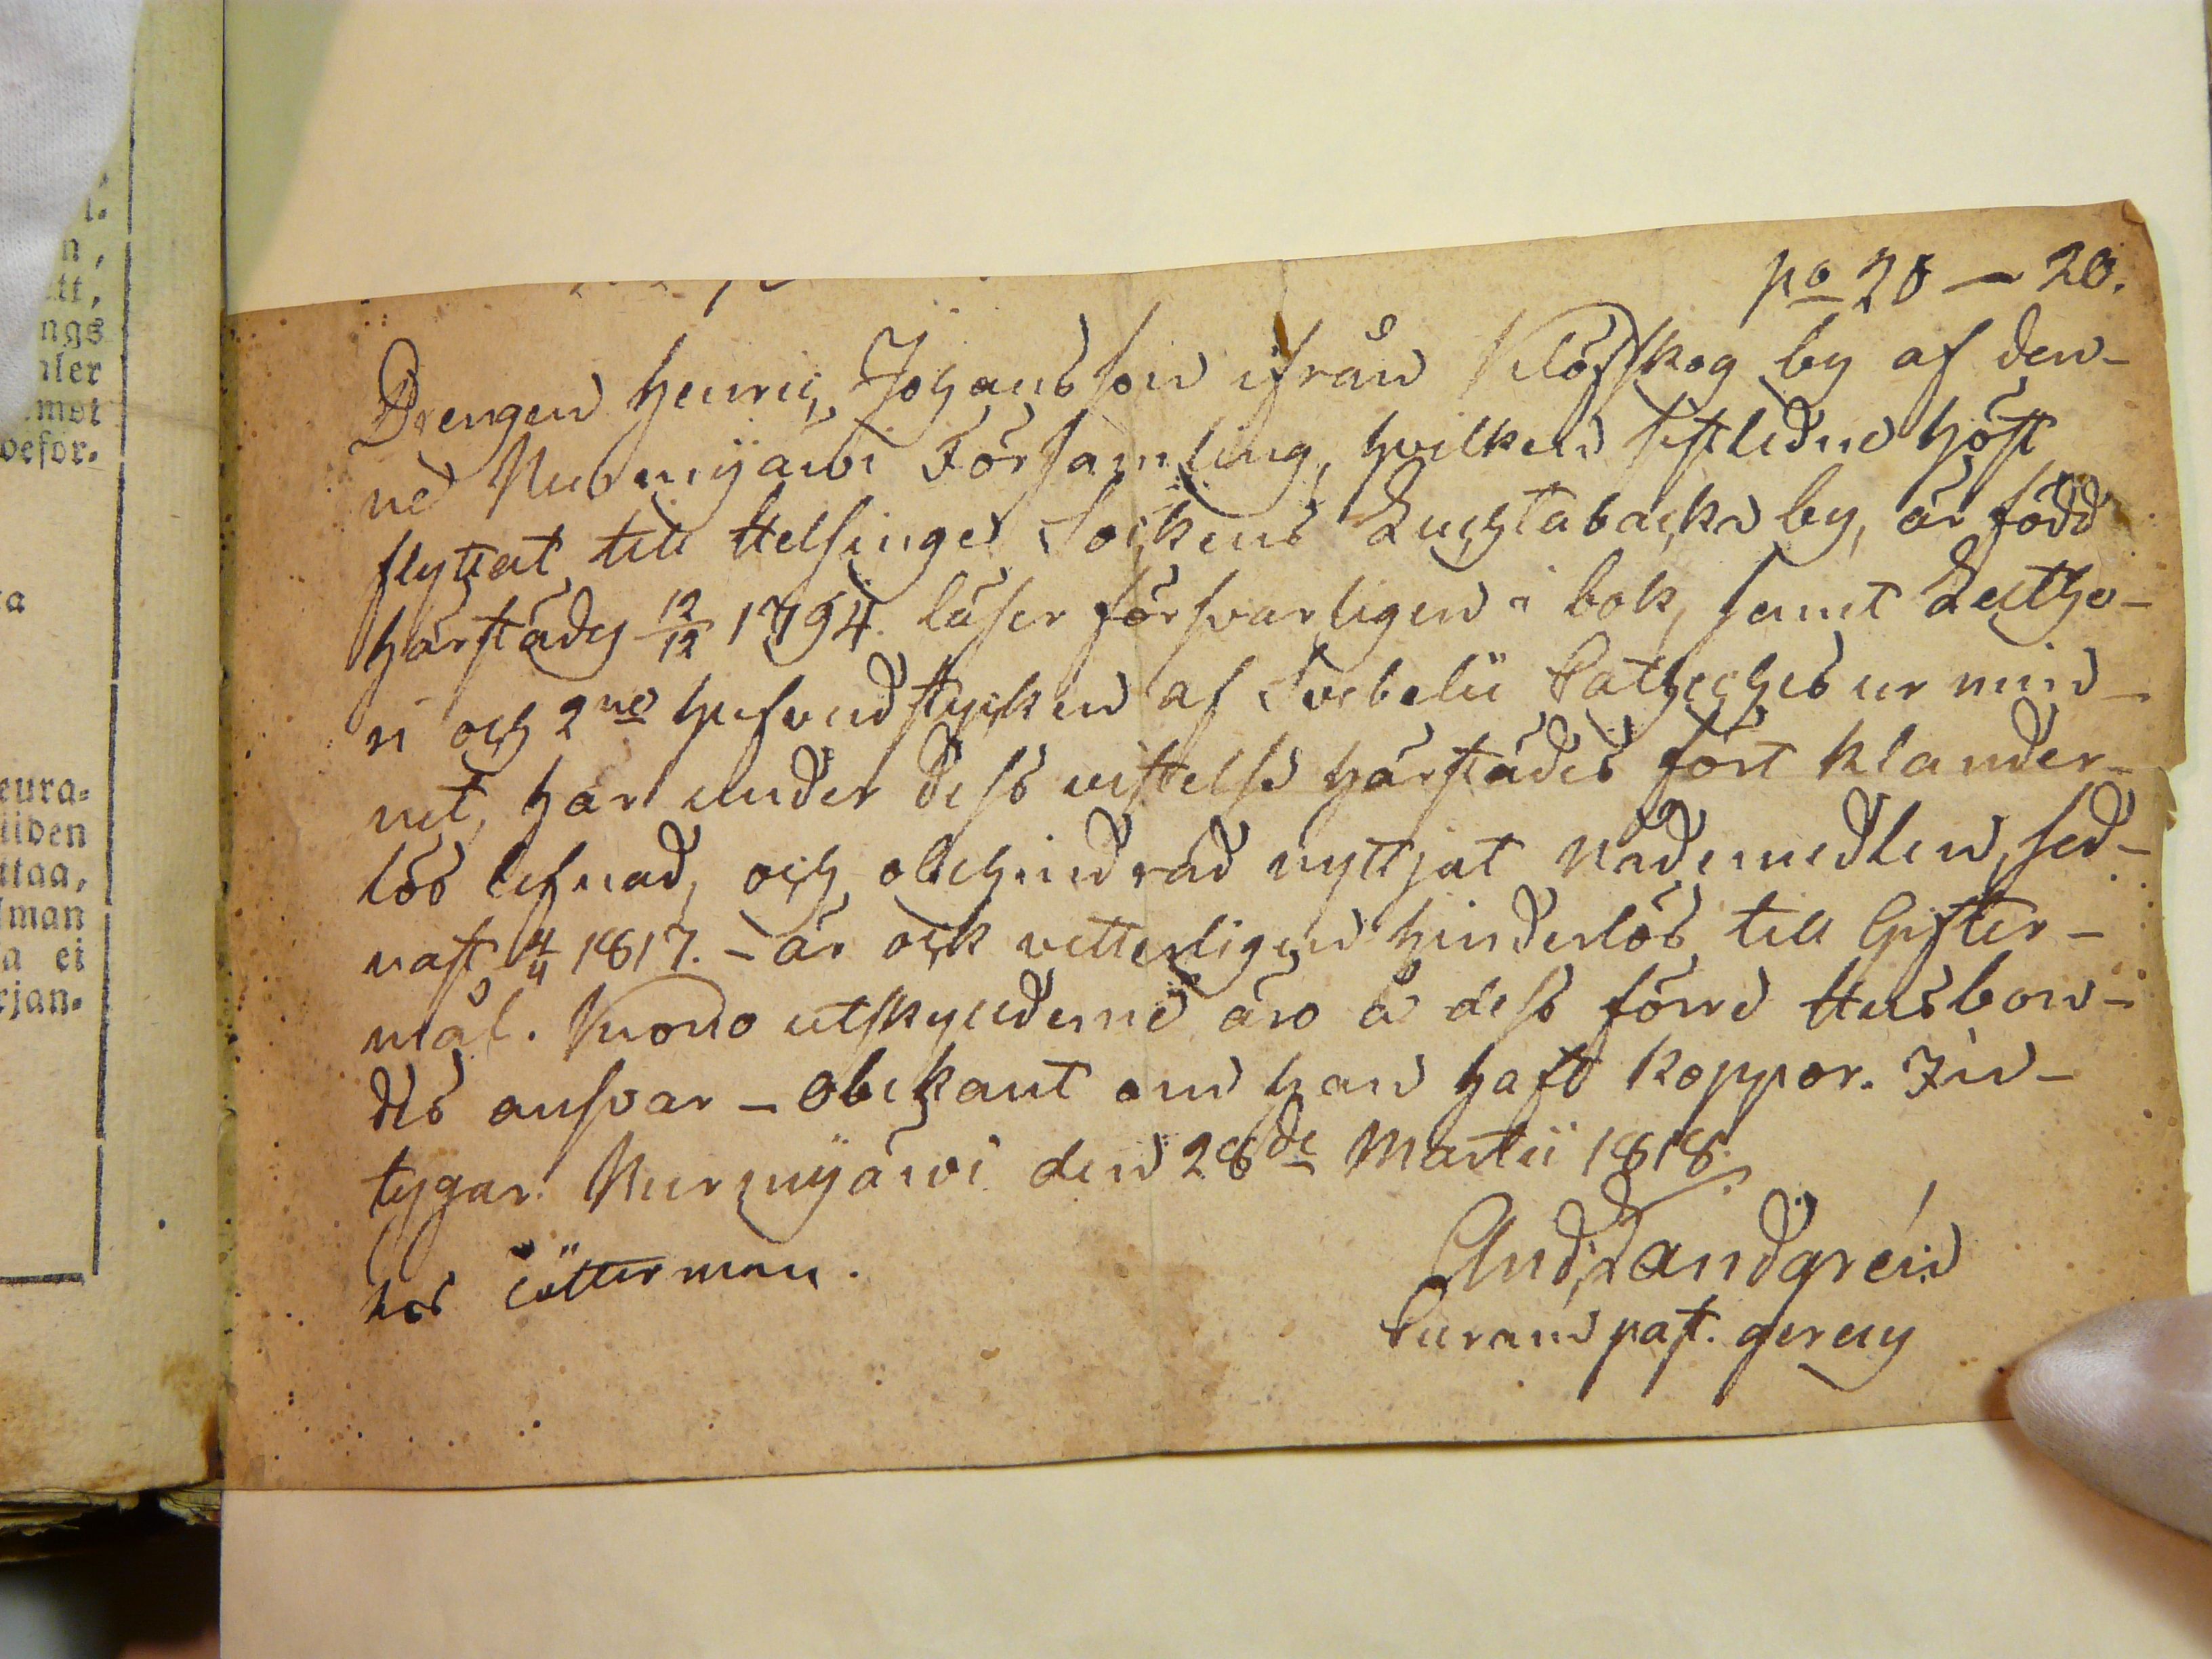 n,
tt,
ngs
ler
mot
oefor-
a
eura-
iiden
ttaa,
lman
a ei
rjan-
po 28 — 20.
Drengen Henric Johansson ifrån Klöfskog by af den-
na Nurmijärvi Församling, hvilken sistledne höst
flyttat till Helsinge Sockens Luchtabacka by, är född
härstädes 12/12 1794. läser försvarligen i bok, samt Luthe-
ri och 2ne hufvudstycken af Svebelii Cateches ur min-
net, har under dess vistelse härstädes fört klander-
lös lefnad, och obehindrad nyttjat Nådemedlen, sed-
nast 4/4 1817. – är ock vetterligen hinderlös till Gifter-
mål. Krono utskylderne äro å dess förre Husbon-
des ansvar – obekant om han haft koppor. In-
tygar. Nurmijärvi den 28de Martii 1818.
And. Landgrén
past.
hos Cütterman.